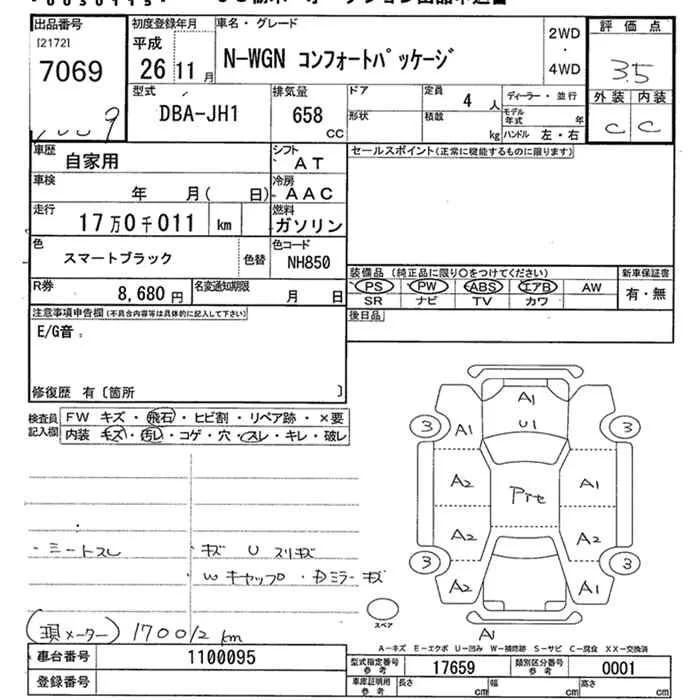 出品番号
[2172]
7069
初度登録年月
平成
26 11月
車名・グレード
N-WGN コンフォートパッケージ
2WD
・
4WD
評価点
3.5
外装 内装
C C
型式
DBA-JH1
排気量
658
CC
ドア
形状
定員
4 人
積載
kg
ディーラー・並行
モデル年式 年
ハンドル 左・右
車歴
自家用
シフト
AT
車検
年 月( 日)
冷房
AAC
走行
17万0千011 km
燃料
ガソリン
色
スマートブラック
色替
色コード
NH850
R券
8,680 円
名変通知期限
月 日
セールスポイント(正常に機能するものに限ります)
装備品 (純正品に限り○をつけてください)
新車保証書
PS PW ABS エアB AW
有・無
SR ナビ TV カワ
後日品
注意事項申告欄(不具合内容等は具体的に記入して下さい)
E/G音。
修復歴 有〔箇所 〕
検査員
記入欄
FW キズ・飛石・ヒビ割・リペア跡・×要
内装 キズ・汚レ・コゲ・穴・スレ・キレ・破レ
・シートスレ
・キズ U スリキズ
Wキャップ・Dミラーキズ
(現メーター) 170012 km
A1
U1
3
3
A1
A2
A1
Pite
A2
A2
3
3
A2
A1
A1
スペア
A-キズ E-エクボ U-凹み W-補修跡 S-サビ C-腐食 XX-交換済
車台番号
1100095
登録番号
型式指定番号
参考
17659
類別区分番号
参考
0001
車庫証明用
参考
長さ cm
幅 cm
高さ cm